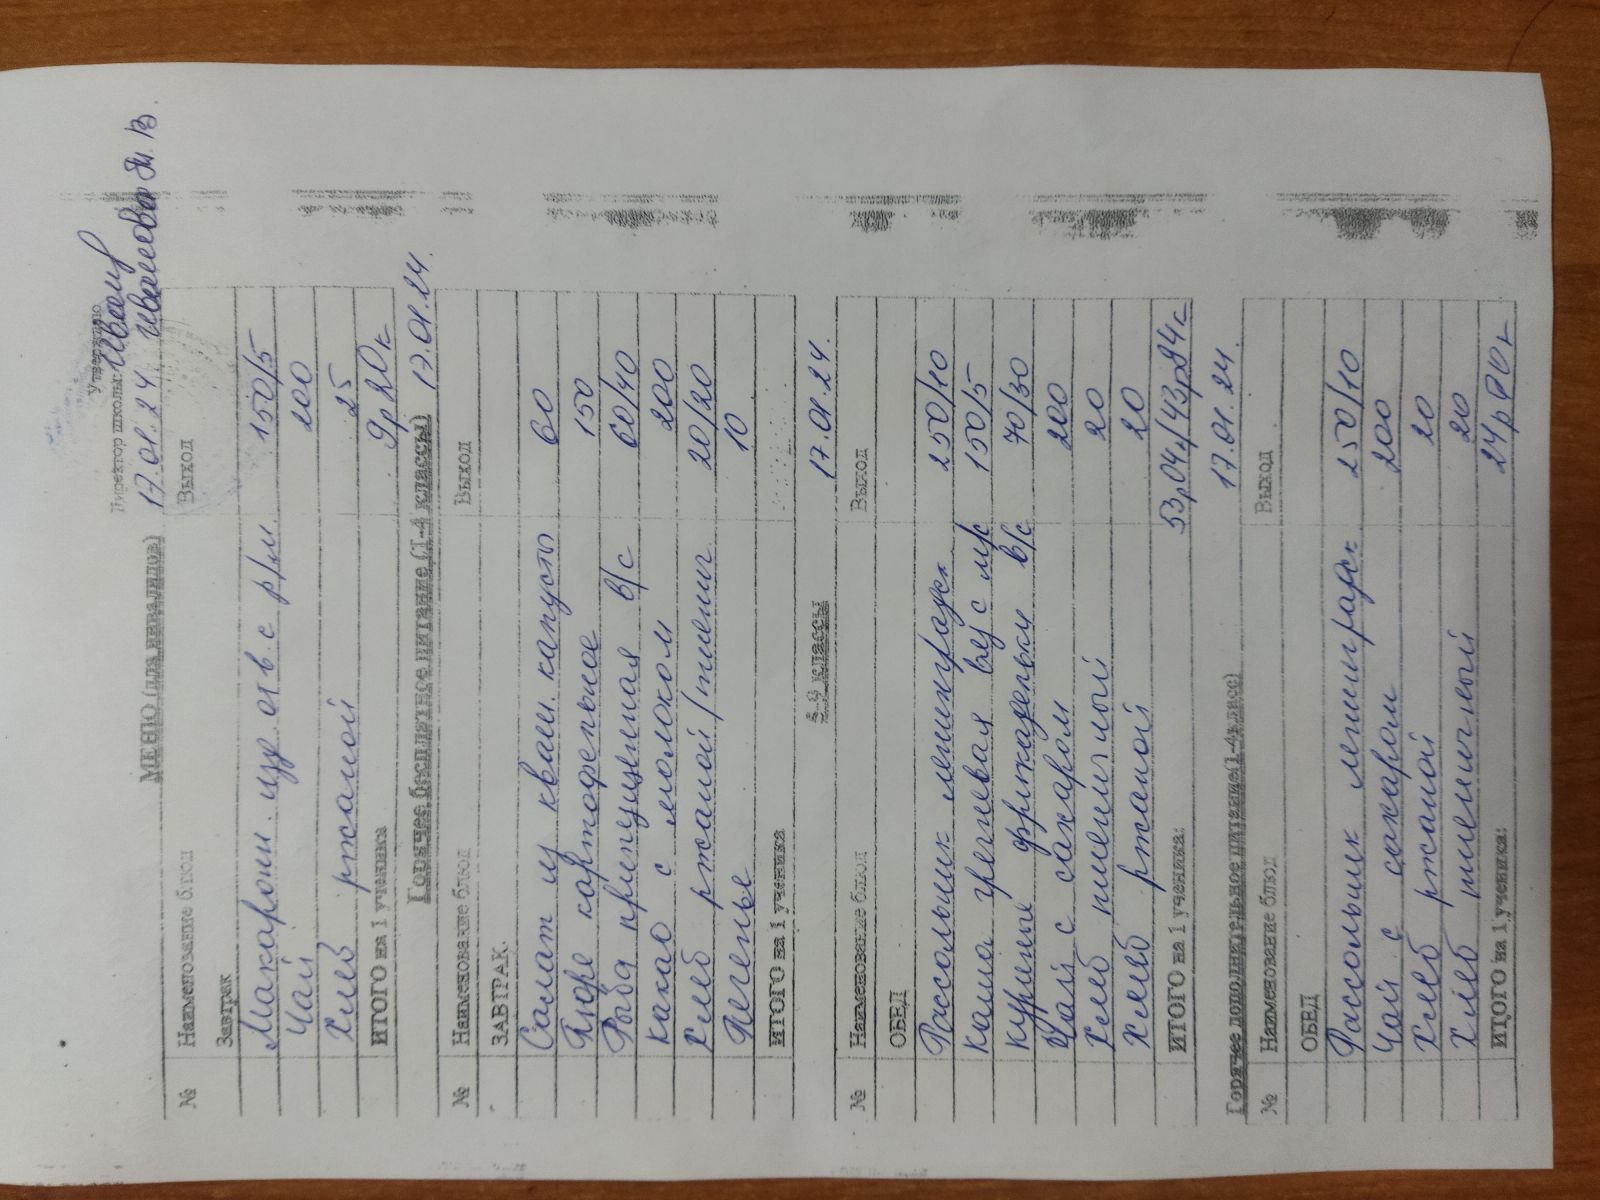 Утверждаю
Директор школы: Иванова
17.01.24 Иванова Я. В.
МЕНЮ (для инвалидов)
№ Наименование блюд Выход
Завтрак
Макарони. изд. отв. с р/м 150/5
Чай 200
Хлеб ржаной 25
ИТОГО на 1 ученика 9р 20к
Горячее бесплатное питание (1-4 классы) 17.01.24.
№ Наименование блюд Выход
ЗАВТРАК
Салат из кваш. капусты 60
Пюре картофельное 150
Рыба припущенная в/с 60/40
Какао с молоком 200
Хлеб ржаной/пшенич 20/20
Печенье 10
ИТОГО на 1 ученика
5-9 классы 17.01.24.
№ Наименование блюд Выход
ОБЕД
Рассольник ленинградск 250/10
Каша гречневая вез с м/с 150/5
Куриные фрикадельки в/с 70/30
Чай с сахаром 200
Хлеб пшеничной 20
Хлеб ржаной 20
ИТОГО на 1 ученика: 53р04к/43р84к
17.01.24.
Горячее дополнительное питание(1-4класс)
№ Наименование блюд Выход
ОБЕД
Рассольник ленинградск 250/10
Чай с сахаром 200
Хлеб ржаной 20
Хлеб пшеничный 20
ИТОГО на 1 ученика: 24р00к